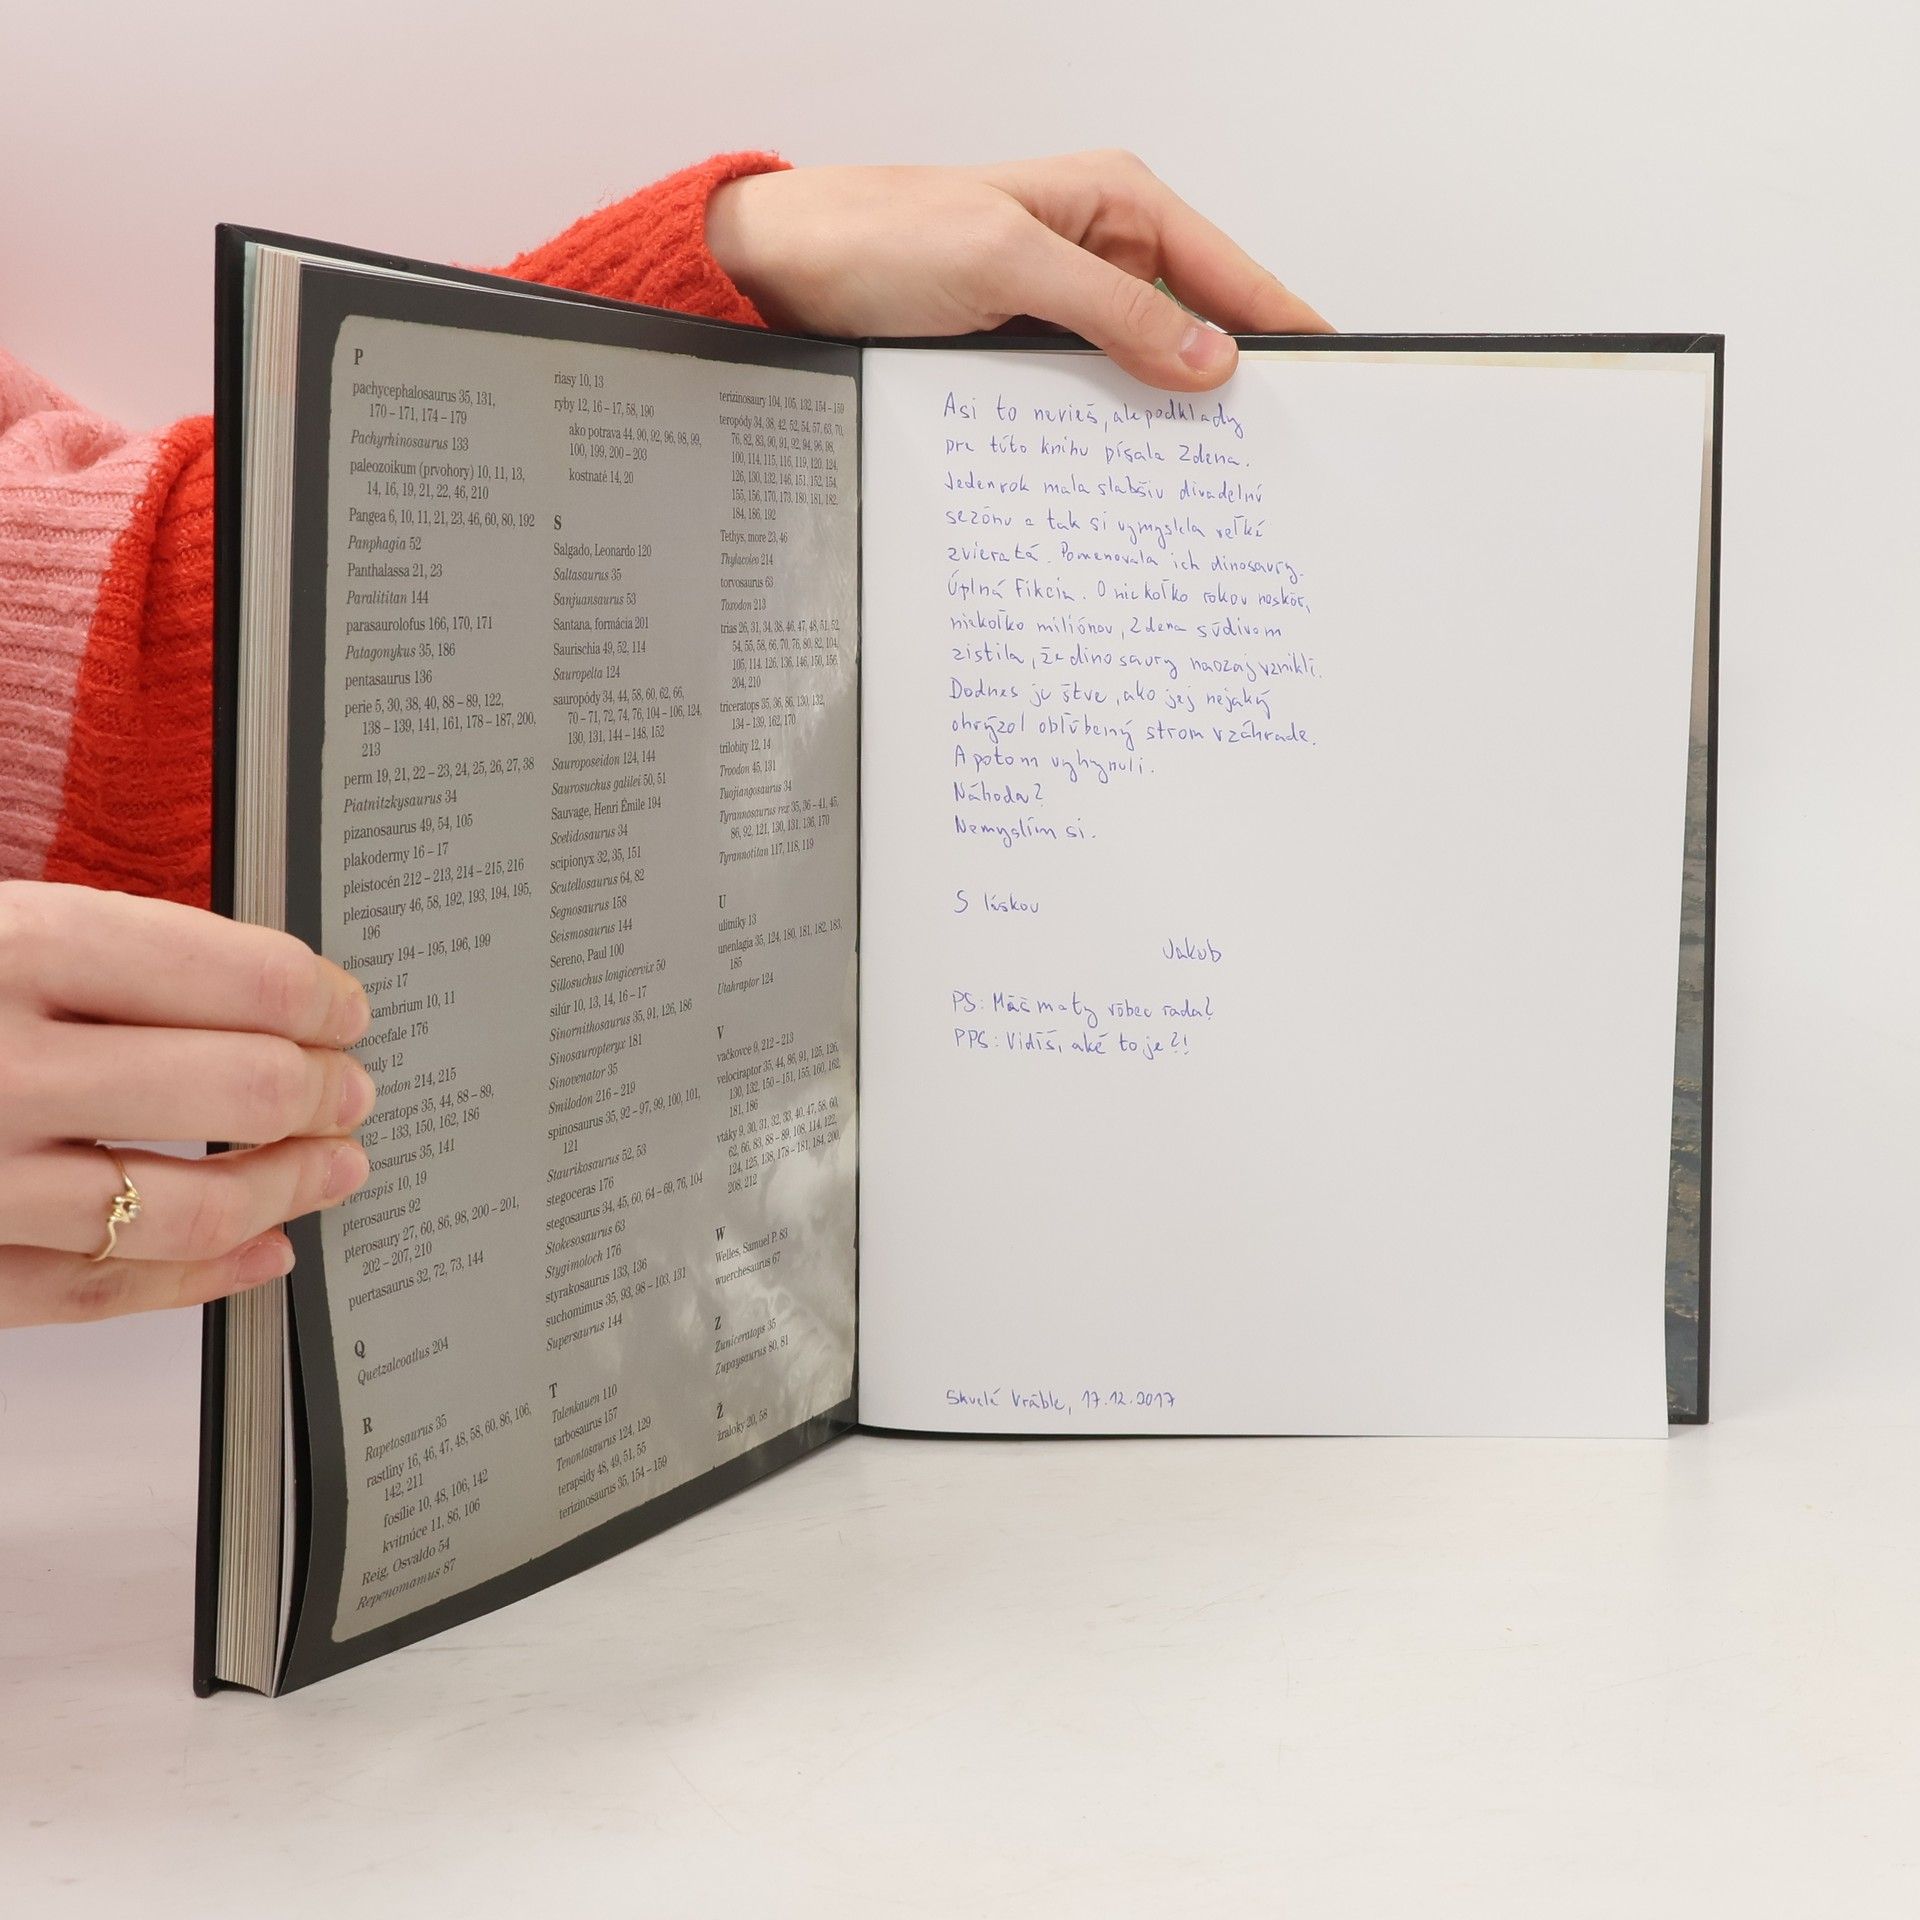 P
pachycephalosaurus 35, 131,
170 – 171, 174 – 179
Pachyrhinosaurus 133
paleozoikum (prvohory) 10, 11, 13,
14, 16, 19, 21, 22, 46, 210
Pangea 6, 10, 11, 21, 23, 46, 60, 80, 192
Panphagia 52
Panthalassa 21, 23
Paralititan 144
parasaurolofus 166, 170, 171
Patagonykus 35, 186
pentasaurus 136
perie 5, 30, 38, 40, 88 – 89, 122,
138 – 139, 141, 161, 178 – 187, 200,
213
perm 19, 21, 22 – 23, 24, 25, 26, 27, 38
Piatnitzkysaurus 34
pizanosaurus 49, 54, 105
plakodermy 16 – 17
pleistocén 212 – 213, 214 – 215, 216
pleziosaury 46, 58, 192, 193, 194, 195,
196
pliosaury 194 – 195, 196, 199
aspis 17
kambrium 10, 11
enocefale 176
puly 12
ptodon 214, 215
oceratops 35, 44, 88 – 89,
132 – 133, 150, 162, 186
kosaurus 35, 141
Pteraspis 10, 19
pterosaurus 92
pterosaury 27, 60, 86, 98, 200 – 201,
202 – 207, 210
puertasaurus 32, 72, 73, 144
Q
Quetzalcoatlus 204
R
Rapetosaurus 35
rastliny 16, 46, 47, 48, 58, 60, 86, 106,
142, 211
fosílie 10, 48, 106, 142
kvitnúce 11, 86, 106
Reig, Osvaldo 54
Repenomamus 87
riasy 10, 13
ryby 12, 16 – 17, 58, 190
ako potrava 44, 90, 92, 96, 98, 99,
100, 199, 200 – 203
kostnaté 14, 20
S
Salgado, Leonardo 120
Saltasaurus 35
Sanjuansaurus 53
Santana, formácia 201
Saurischia 49, 52, 114
Sauropelta 124
sauropódy 34, 44, 58, 60, 62, 66,
70 – 71, 72, 74, 76, 104 – 106, 124,
130, 131, 144 – 148, 152
Sauroposeidon 124, 144
Saurosuchus galilei 50, 51
Sauvage, Henri Émile 194
Scelidosaurus 34
scipionyx 32, 35, 151
Scutellosaurus 64, 82
Segnosaurus 158
Seismosaurus 144
Sereno, Paul 100
Sillosuchus longicervix 50
silúr 10, 13, 14, 16 – 17
Sinornithosaurus 35, 91, 126, 186
Sinosauropteryx 181
Sinovenator 35
Smilodon 216 – 219
spinosaurus 35, 92 – 97, 99, 100, 101,
121
Staurikosaurus 52, 53
stegoceras 176
stegosaurus 34, 45, 60, 64 – 69, 76, 104
Stokesosaurus 63
Stygimoloch 176
styrakosaurus 133, 136
suchomimus 35, 93, 98 – 103, 131
Supersaurus 144
T
Talenkauen 110
tarbosaurus 157
Tenontosaurus 124, 129
terapsidy 48, 49, 51, 55
terizinosaurus 35, 154 – 159
terizinosaury 104, 105, 132, 154 – 159
teropódy 34, 38, 42, 52, 54, 57, 63, 70,
76, 82, 83, 90, 91, 92, 94, 96, 98,
100, 114, 115, 116, 119, 120, 124,
126, 130, 132, 146, 151, 152, 154,
155, 156, 170, 173, 180, 181, 182,
184, 186, 192
Tethys, more 23, 46
Thylacoleo 214
torvosaurus 63
Toxodon 213
trias 26, 31, 34, 38, 46, 47, 48, 51, 52,
54, 55, 58, 66, 70, 76, 80, 82, 104,
105, 114, 126, 136, 146, 150, 156,
204, 210
triceratops 35, 36, 86, 130, 132,
134 – 139, 162, 170
trilobity 12, 14
Troodon 45, 131
Tuojiangosaurus 34
Tyrannosaurus rex 35, 36 – 41, 45,
86, 92, 121, 130, 131, 136, 170
Tyrannotitan 117, 118, 119
U
ulitníky 13
unenlagia 35, 124, 180, 181, 182, 183,
185
Utahraptor 124
V
vačkovce 9, 212 – 213
velociraptor 35, 44, 86, 91, 125, 126,
130, 132, 150 – 151, 155, 160, 162,
181, 186
vtáky 9, 30, 31, 32, 33, 40, 47, 58, 60,
62, 66, 83, 88 – 89, 108, 114, 122,
124, 125, 138, 178 – 181, 184, 200,
208, 212
W
Welles, Samuel P. 83
wuerchesaurus 67
Z
Zuniceratops 35
Zupaysaurus 80, 81
Ž
žraloky 20, 58
Asi to nevieš, ale podklady
pre túto knihu písala Zdena.
Jeden rok mala slabšiu divadelnú
sezónu a tak si vymyslela veľké
zvieratá. Pomenovala ich dinosaury.
Úplná fikcia. O niekoľko rokov neskôr,
niekoľko miliónov, Zdena s údivom
zistila, že dinosaury naozaj vznikli.
Dodnes ju štve, ako jej nejaký
ohrýzol obľúbený strom v záhrade.
A potom vyhynuli.
Náhoda?
Nemyslím si.
S láskou
Jakub
PS: Máš ma ty vôbec rada?
PPS: Vidíš, aké to je?!
Skvelé Vráble, 17.12.2017